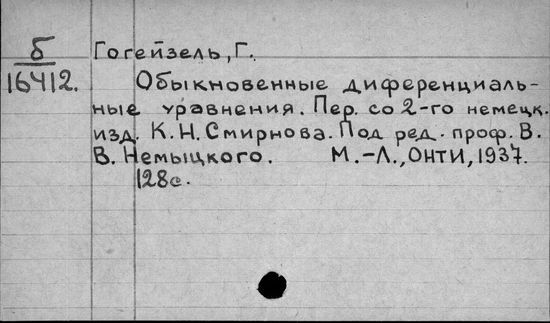 Б Гогейзель, Г.
16412. Обыкновенные диференциаль-
ные уравнения. Пер. со 2-го немецк.
изд. К.Н. Смирнова. Под ред. проф. В.
В. Немыцкого. М.-Л., ОНТИ, 1937.
128с.